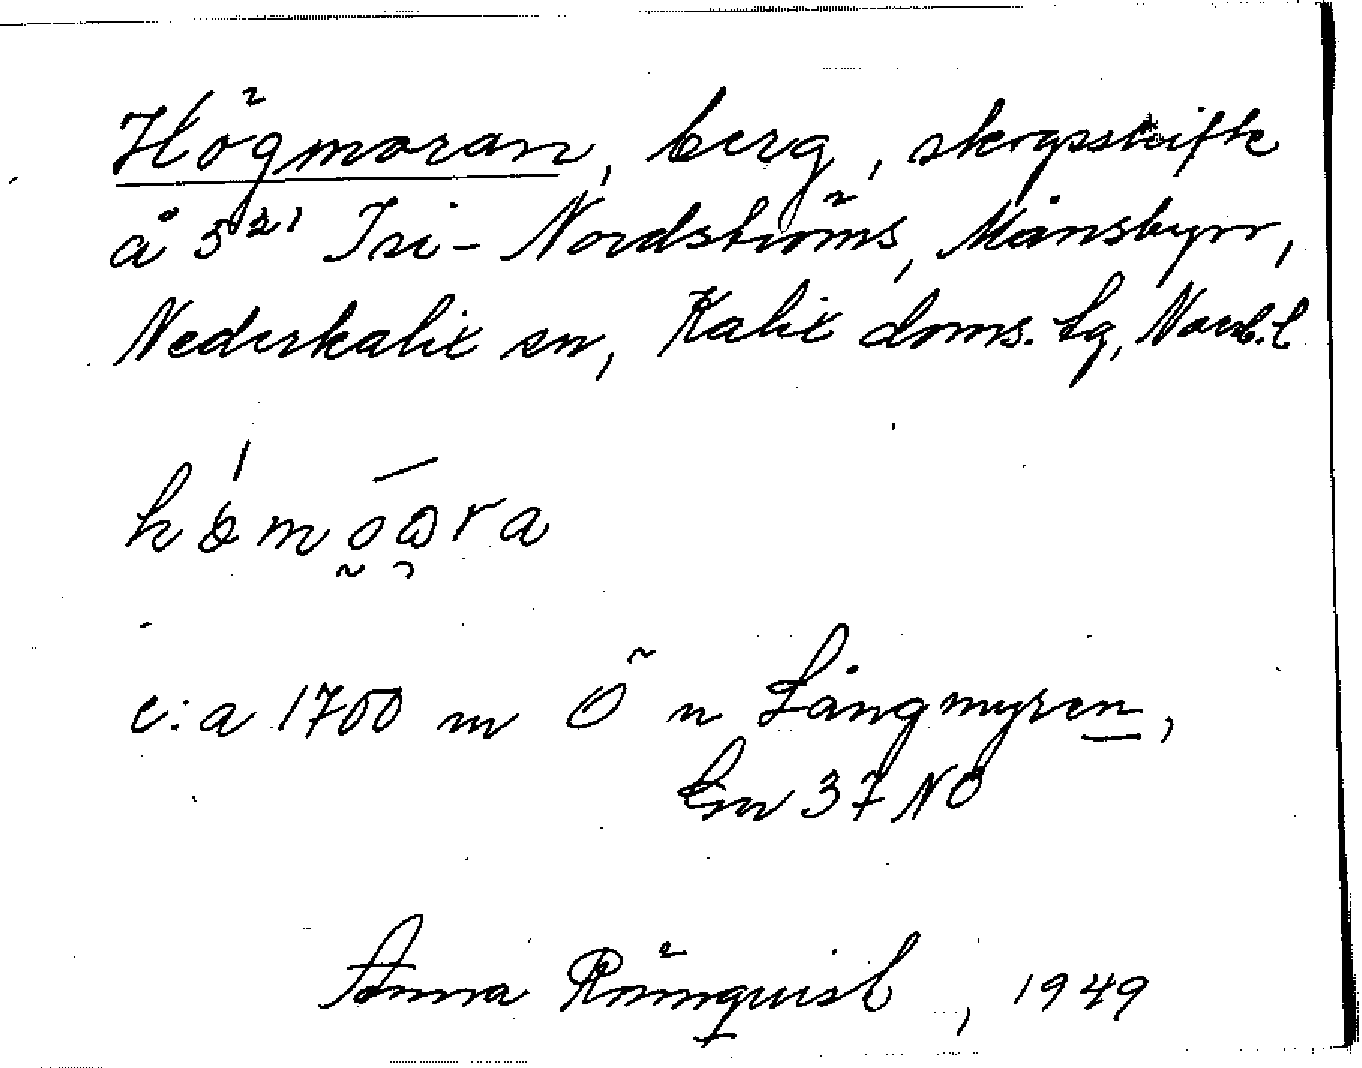 Högmoran, berg, skogsskifte
å 5²¹ Isi-Nordströms, Månsbyn,
Nederkalix sn, Kalix doms. lg, Norrb. l

c:a 1700 m Ö n Långmyren,
Gm 37 NO
Anna Rönnquist, 1949